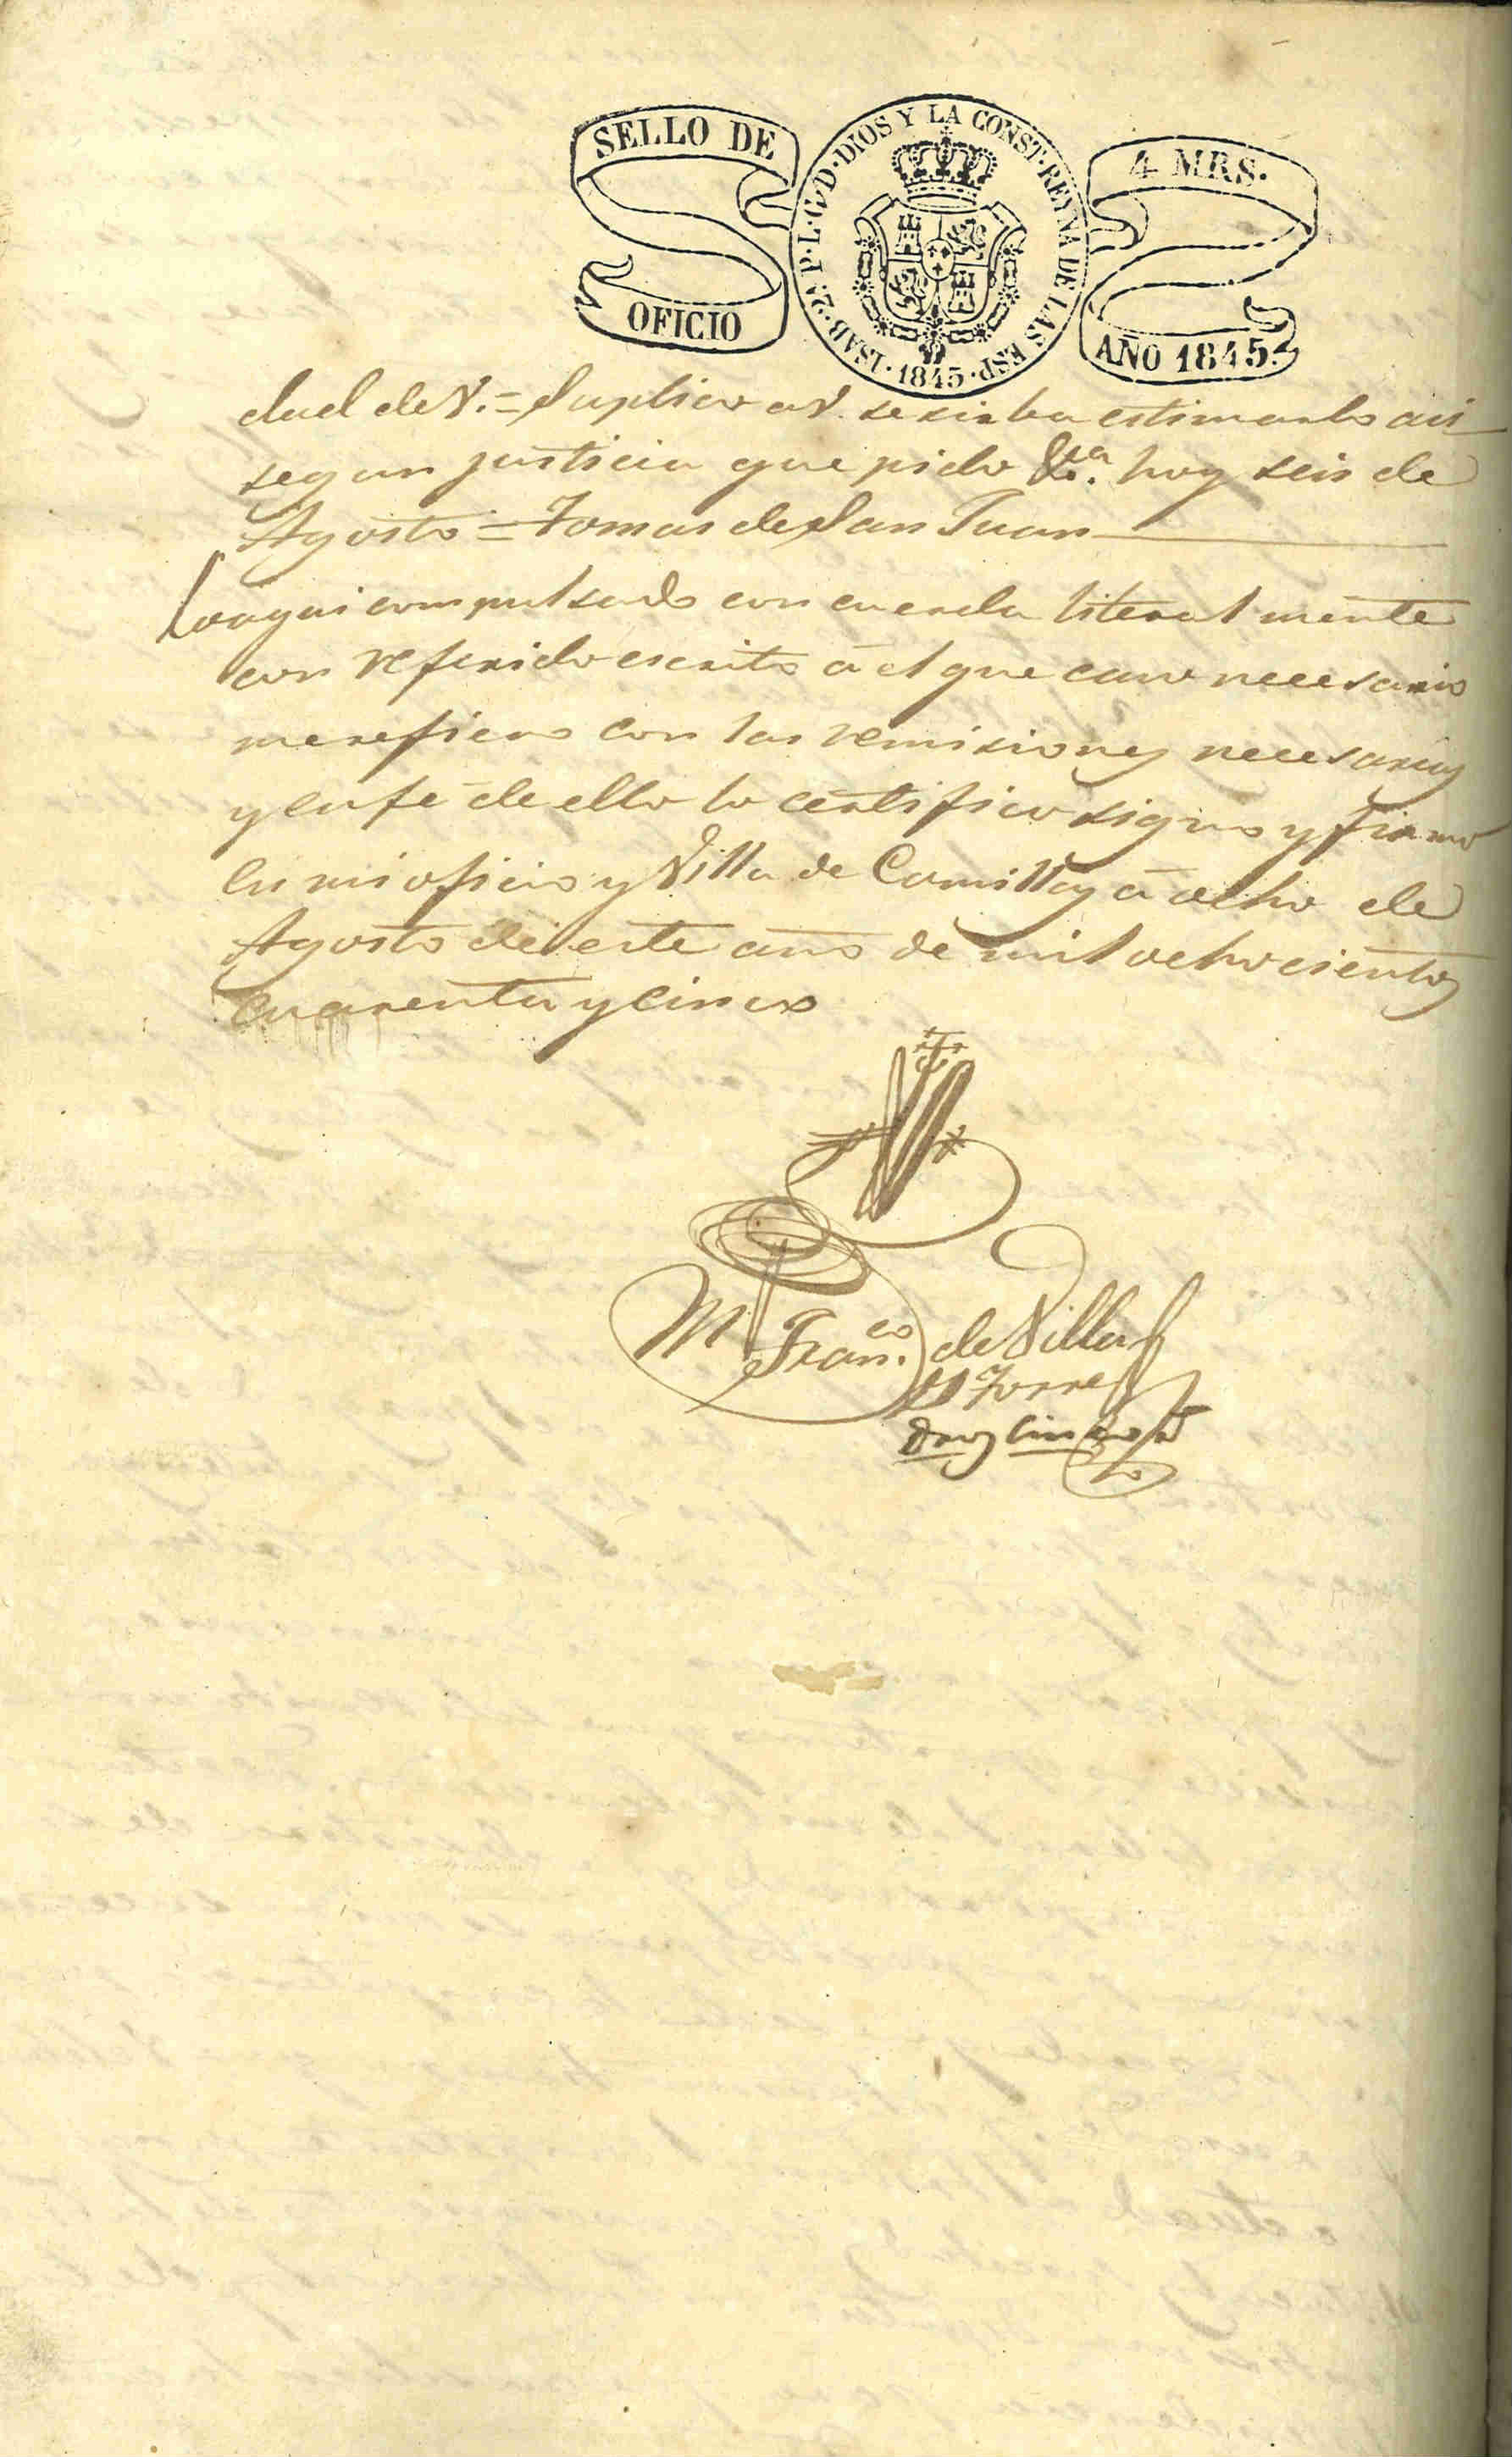 SELLO DE
OFICIO
ISAB. 2ª P. L. G. D. DIOS Y LA CONST. REYNA DE LAS ESP
1845
4 MRS.
AÑO 1845.
dad de V. = Suplico a V. se sirba estimarlo asi
segun justicia que pido &ª. hoy seis de
Agosto = Tomas de San Juan
Lo aqui compulsado concuerda literalmente
con referido escrito á el que caso necesario
me refiero con las remisiones necesarias
y en fé de ello lo certifico signo y firmo
en mi oficio y Villa de Comillas á ocho de
Agosto de este año de mil ochocientos
cuarenta y cinco
Franco. de Villa
Torre